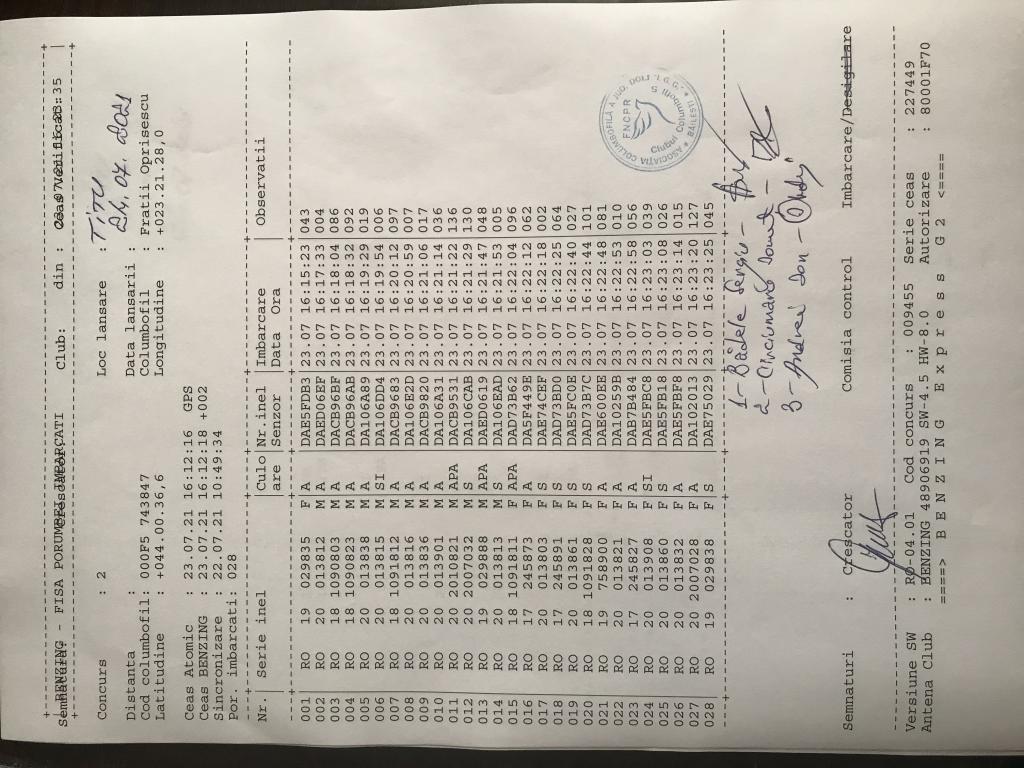 BENZING - FISA PORUMBEI IMBARCATI Club: din :
Concurs : 2 Loc lansare : TITU
Distanta : Data lansarii : 24.07.2021
Cod columbofil: 000F5 743847 Columbofil : Fratii Oprisescu
Latitudine : +044.00.36,6 Longitudine : +023.21.28,0
Ceas Atomic : 23.07.21 16:12:16 GPS
Ceas BENZING : 23.07.21 16:12:18 +002
Sincronizare : 22.07.21 10:49:34
Por. imbarcati: 028
Nr.| Serie inel |Culo|Nr.inel |Imbarcare | Observatii
are |Senzor |Data Ora
001 RO 19 029835 F A DAEFDB3 23.07 16:15:23 043
002 RO 20 013812 M A DAED06EF 23.07 16:17:33 004
003 RO 18 1090803 M A DACB96BF 23.07 16:18:04 086
004 RO 18 1090823 M A DACB96AB 23.07 16:18:32 092
005 RO 20 013838 M A DA106A89 23.07 16:19:29 019
006 RO 20 013815 M SI DA106DD4 23.07 16:19:54 006
007 RO 18 1091812 M A DACB9683 23.07 16:20:12 097
008 RO 20 013816 M A DA106E2D 23.07 16:20:59 007
009 RO 20 013836 M A DACB9820 23.07 16:21:06 017
010 RO 20 013901 M A DA106A31 23.07 16:21:14 036
011 RO 20 2010821 M APA DACB9531 23.07 16:21:22 136
012 RO 20 2007032 M S DA106CAB 23.07 16:21:29 130
013 RO 19 029888 M APA DAED0619 23.07 16:21:47 048
014 RO 20 013813 M S DA106EAD 23.07 16:21:53 005
015 RO 18 1091811 F APA DAD73B62 23.07 16:22:04 096
016 RO 17 245873 F A DA5F449E 23.07 16:22:12 062
017 RO 20 013803 F S DAE74CEF 23.07 16:22:18 002
018 RO 17 245891 F S DAD73BD0 23.07 16:22:25 064
019 RO 20 013861 F S DAE5FC0E 23.07 16:22:40 027
020 RO 18 1091828 F S DAD73B7C 23.07 16:22:44 101
021 RO 19 758900 F A DAE600EE 23.07 16:22:48 081
022 RO 20 013821 F A DA10259B 23.07 16:22:53 010
023 RO 17 245827 F A DAB7B484 23.07 16:22:58 056
024 RO 20 013908 F SI DAE5FBC8 23.07 16:23:03 039
025 RO 20 013860 F S DAE5FB18 23.07 16:23:08 026
026 RO 20 013832 F A DAE5FBF8 23.07 16:23:14 015
027 RO 20 2007028 F A DA102013 23.07 16:23:20 127
028 RO 19 029838 F S DAE75029 23.07 16:23:25 045
ASOCIATIA COLUMBOFILĂ A JUD. DOLJ "I.G.G." * BĂILEȘTI *
FNCPR
Clubul Columbofil
1 - Bădele Sergiu -
2 - Cincimand Ionut -
3 - Andrei Ion -
Semnaturi : Crescator Comisia control Imbarcare/Desigilare
Versiune SW : RO-04.01 Cod concurs : 009455 Serie ceas : 227449
Antena Club : BENZING 48906919 SW-4.5 HW-8.0 Autorizare : 80001F70
====> B E N Z I N G E x p r e s s G 2 <====